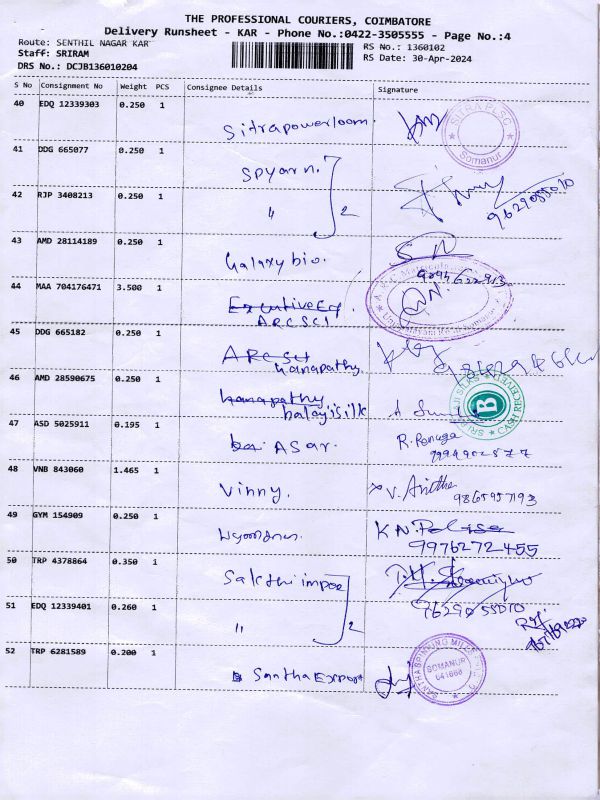 THE PROFESSIONAL COURIERS, COIMBATORE
Delivery Runsheet - KAR - Phone No.:0422-3505555 - Page No.:4
Route: SENTHIL NAGAR KAR
RS No.: 1360102
Staff: SRIRAM
RS Date: 30-Apr-2024
DRS No.: DCJB136010204
S No Consignment No Weight PCS Consignee Details Signature
40 EDQ 12339303 0.250 1
Sitrapowerloom.
SITRAPLSC
Somanur
41 DDG 665077 0.250 1
Spyarn.
42 RJP 3408213 0.250 1
" 2
9629055010
43 AMD 28114189 0.250 1
Galaxy bio.
44 MAA 704176471 3.500 1
ARCSCI
45 DDG 665182 0.250 1
Ganapathy
46 AMD 28590675 0.250 1
balajisilk
B
CASH RECEIVED
47 ASD 5025911 0.195 1
ASar.
R. Renuga
48 VNB 843060 1.465 1
Vinny.
V. Anitha
9865957193
49 GYM 154909 0.250 1
K.N.
9976272455
50 TRP 4378864 0.350 1
Sakthi impex
51 EDQ 12339401 0.260 1
" 2
7629055010
52 TRP 6281589 0.200 1
Santha Export
SANTHA SPINNING MILLS
SOMANUR
641668